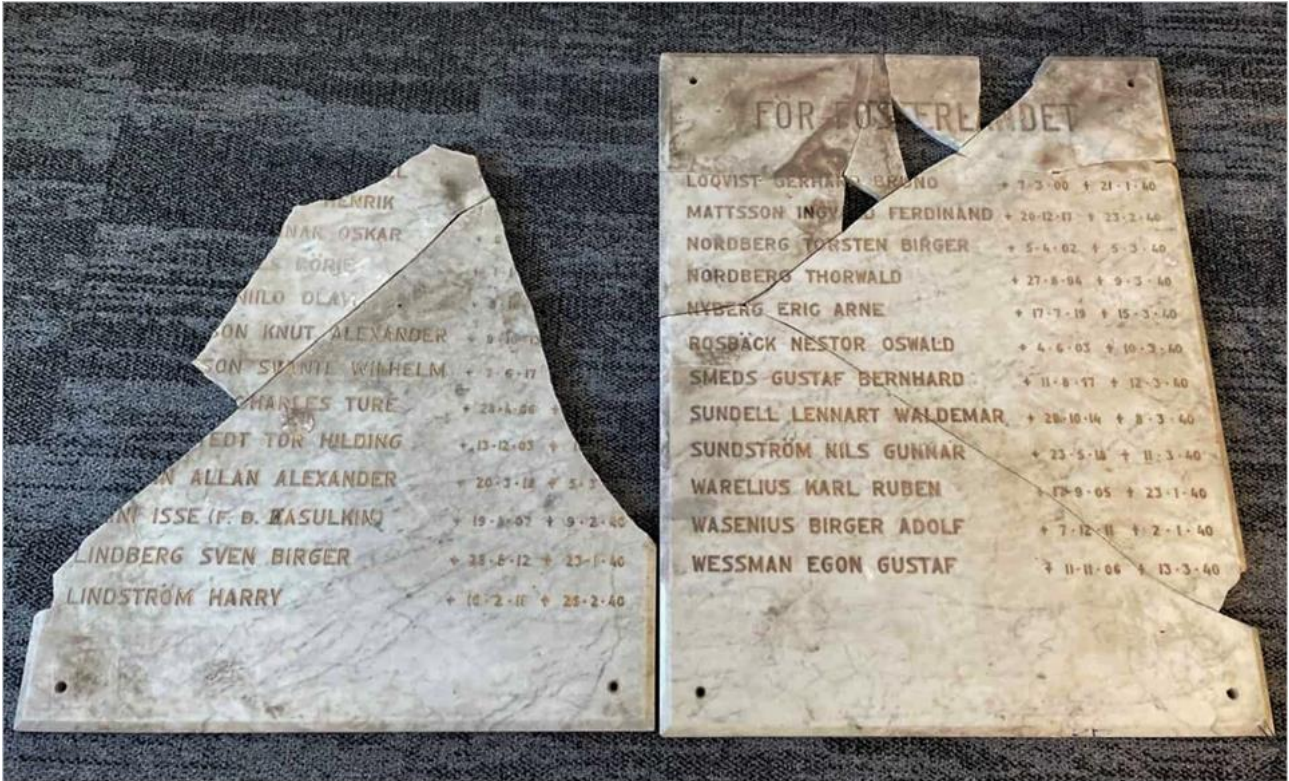 HENRIK
OSKAR
BÖRJE
KNUT ALEXANDER
SON SWANTE WILHELM + 7-6-17
CHARLES TURE + 28-4-06 +
TEDT TOR HILDING + 13-12-03 +
N ALLAN ALEXANDER + 20-3-18 + 5-3
ISSE (F. D. KASULKIN) + 19-8-07 + 9-2-40
LINDBERG SVEN BIRGER + 28-8-12 + 23-1-40
LINDSTRÖM HARRY + 10-2-11 + 25-2-40
FÖR FOSTERLANDET
LÖQVIST GERHARD BRUNO + 7-3-00 + 21-1-40
MATTSSON INGVALD FERDINAND + 20-12-17 + 23-2-40
NORDBERG TORSTEN BIRGER + 5-4-02 + 5-3-40
NORDBERG THORWALD + 27-8-04 + 9-3-40
NYBERG ERIC ARNE + 17-7-19 + 15-3-40
ROSBÄCK NESTOR OSWALD + 4-6-03 + 10-3-40
SMEDS GUSTAF BERNHARD + 11-8-17 + 12-3-40
SUNDELL LENNART WALDEMAR + 28-10-14 + 8-3-40
SUNDSTRÖM NILS GUNNAR + 23-5-18 + 11-3-40
WARELIUS KARL RUBEN + 17-9-05 + 23-1-40
WASENIUS BIRGER ADOLF + 7-12-11 + 2-1-40
WESSMAN EGON GUSTAF + 11-11-06 + 13-3-40